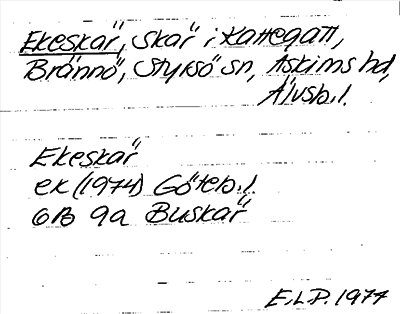 Ekeskär, skär i Kattegatt,
Brännö, Styrsö sn, Askims hd,
Älvsb.l.
Ekeskär
ek (1974) Göteb.l.
6B 9a Buskär
E.L.P. 1974